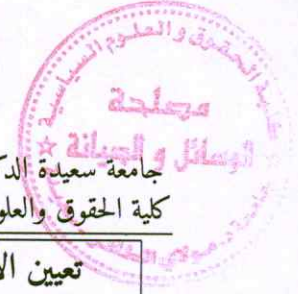 كلية الحقوق والعلوم السياسية
مصلحة
الوسائل و الصيانة
جامعة سعيدة الدك
كلية الحقوق والعلو
تعيين الا